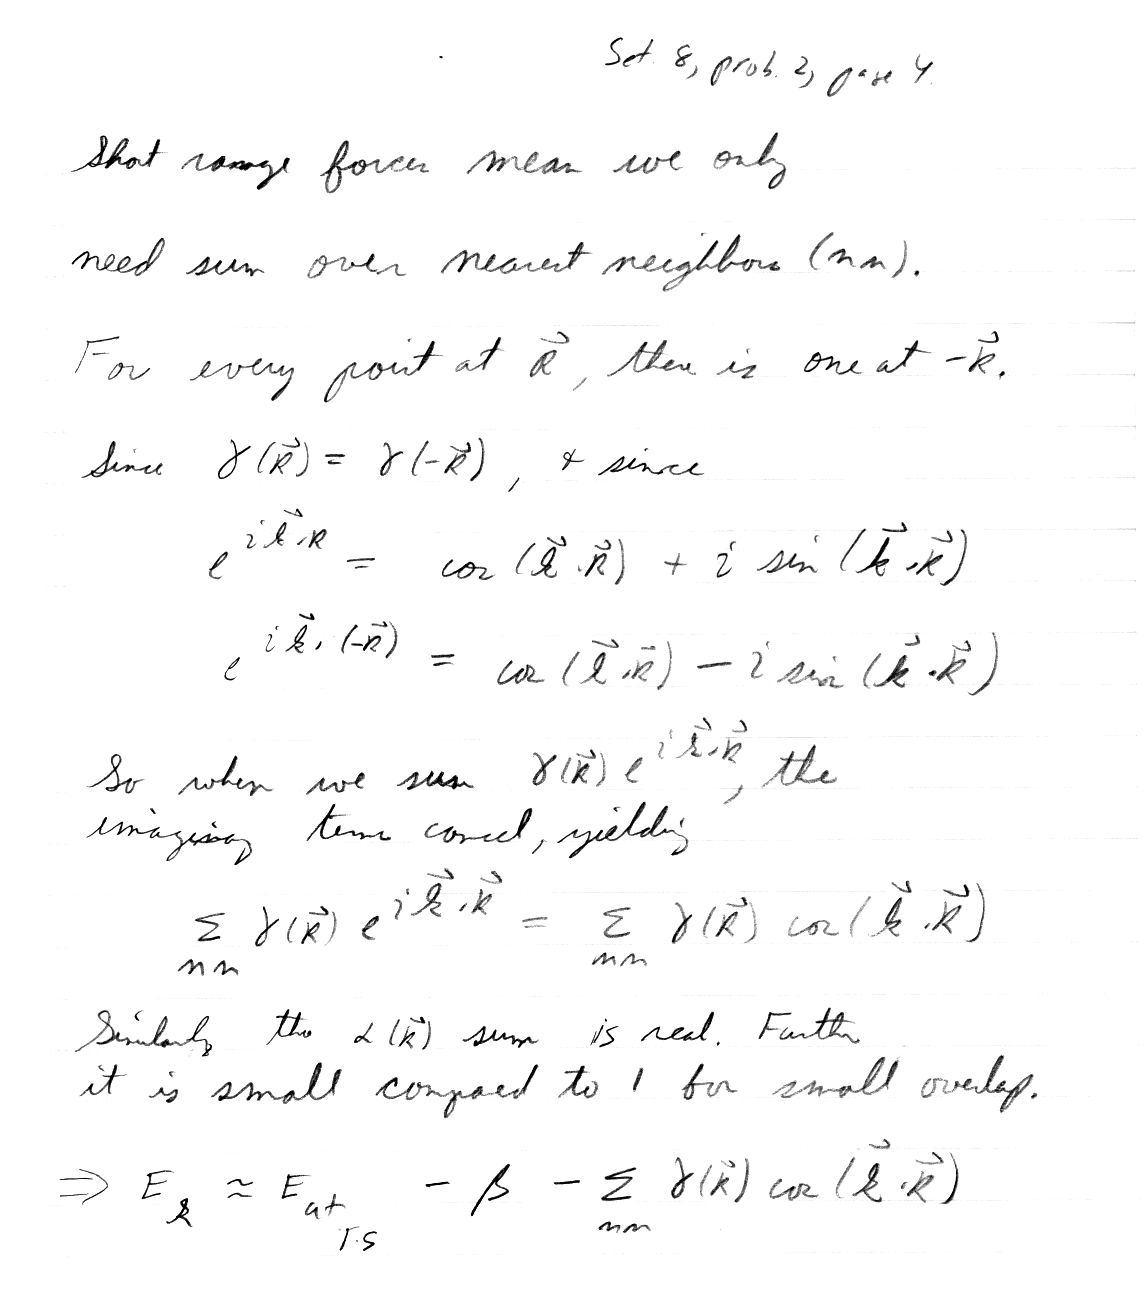 Set 8, prob. 2, page 4
Short range forces mean we only
need sum over nearest neighbors (nn).
For every point at R⃗, there is one at -R⃗.
Since γ(R⃗) = γ(-R⃗), & since
e^{i k⃗·R} = cos(k⃗·R⃗) + i sin(k⃗·R⃗)
e^{i k⃗·(-R⃗)} = cos(k⃗·R⃗) - i sin(k⃗·R⃗)
So when we sum γ(R⃗) e^{i k⃗·R⃗}, the
imaginary terms cancel, yielding
Σ_{nn} γ(R⃗) e^{i k⃗·R⃗} = Σ_{nn} γ(R⃗) cos(k⃗·R⃗)
Similarly the α(R⃗) sum is real. Further
it is small compared to 1 for small overlap.
⇒ E_k ≈ E_{at r.s} - β - Σ_{nn} γ(R⃗) cos(k⃗·R⃗)